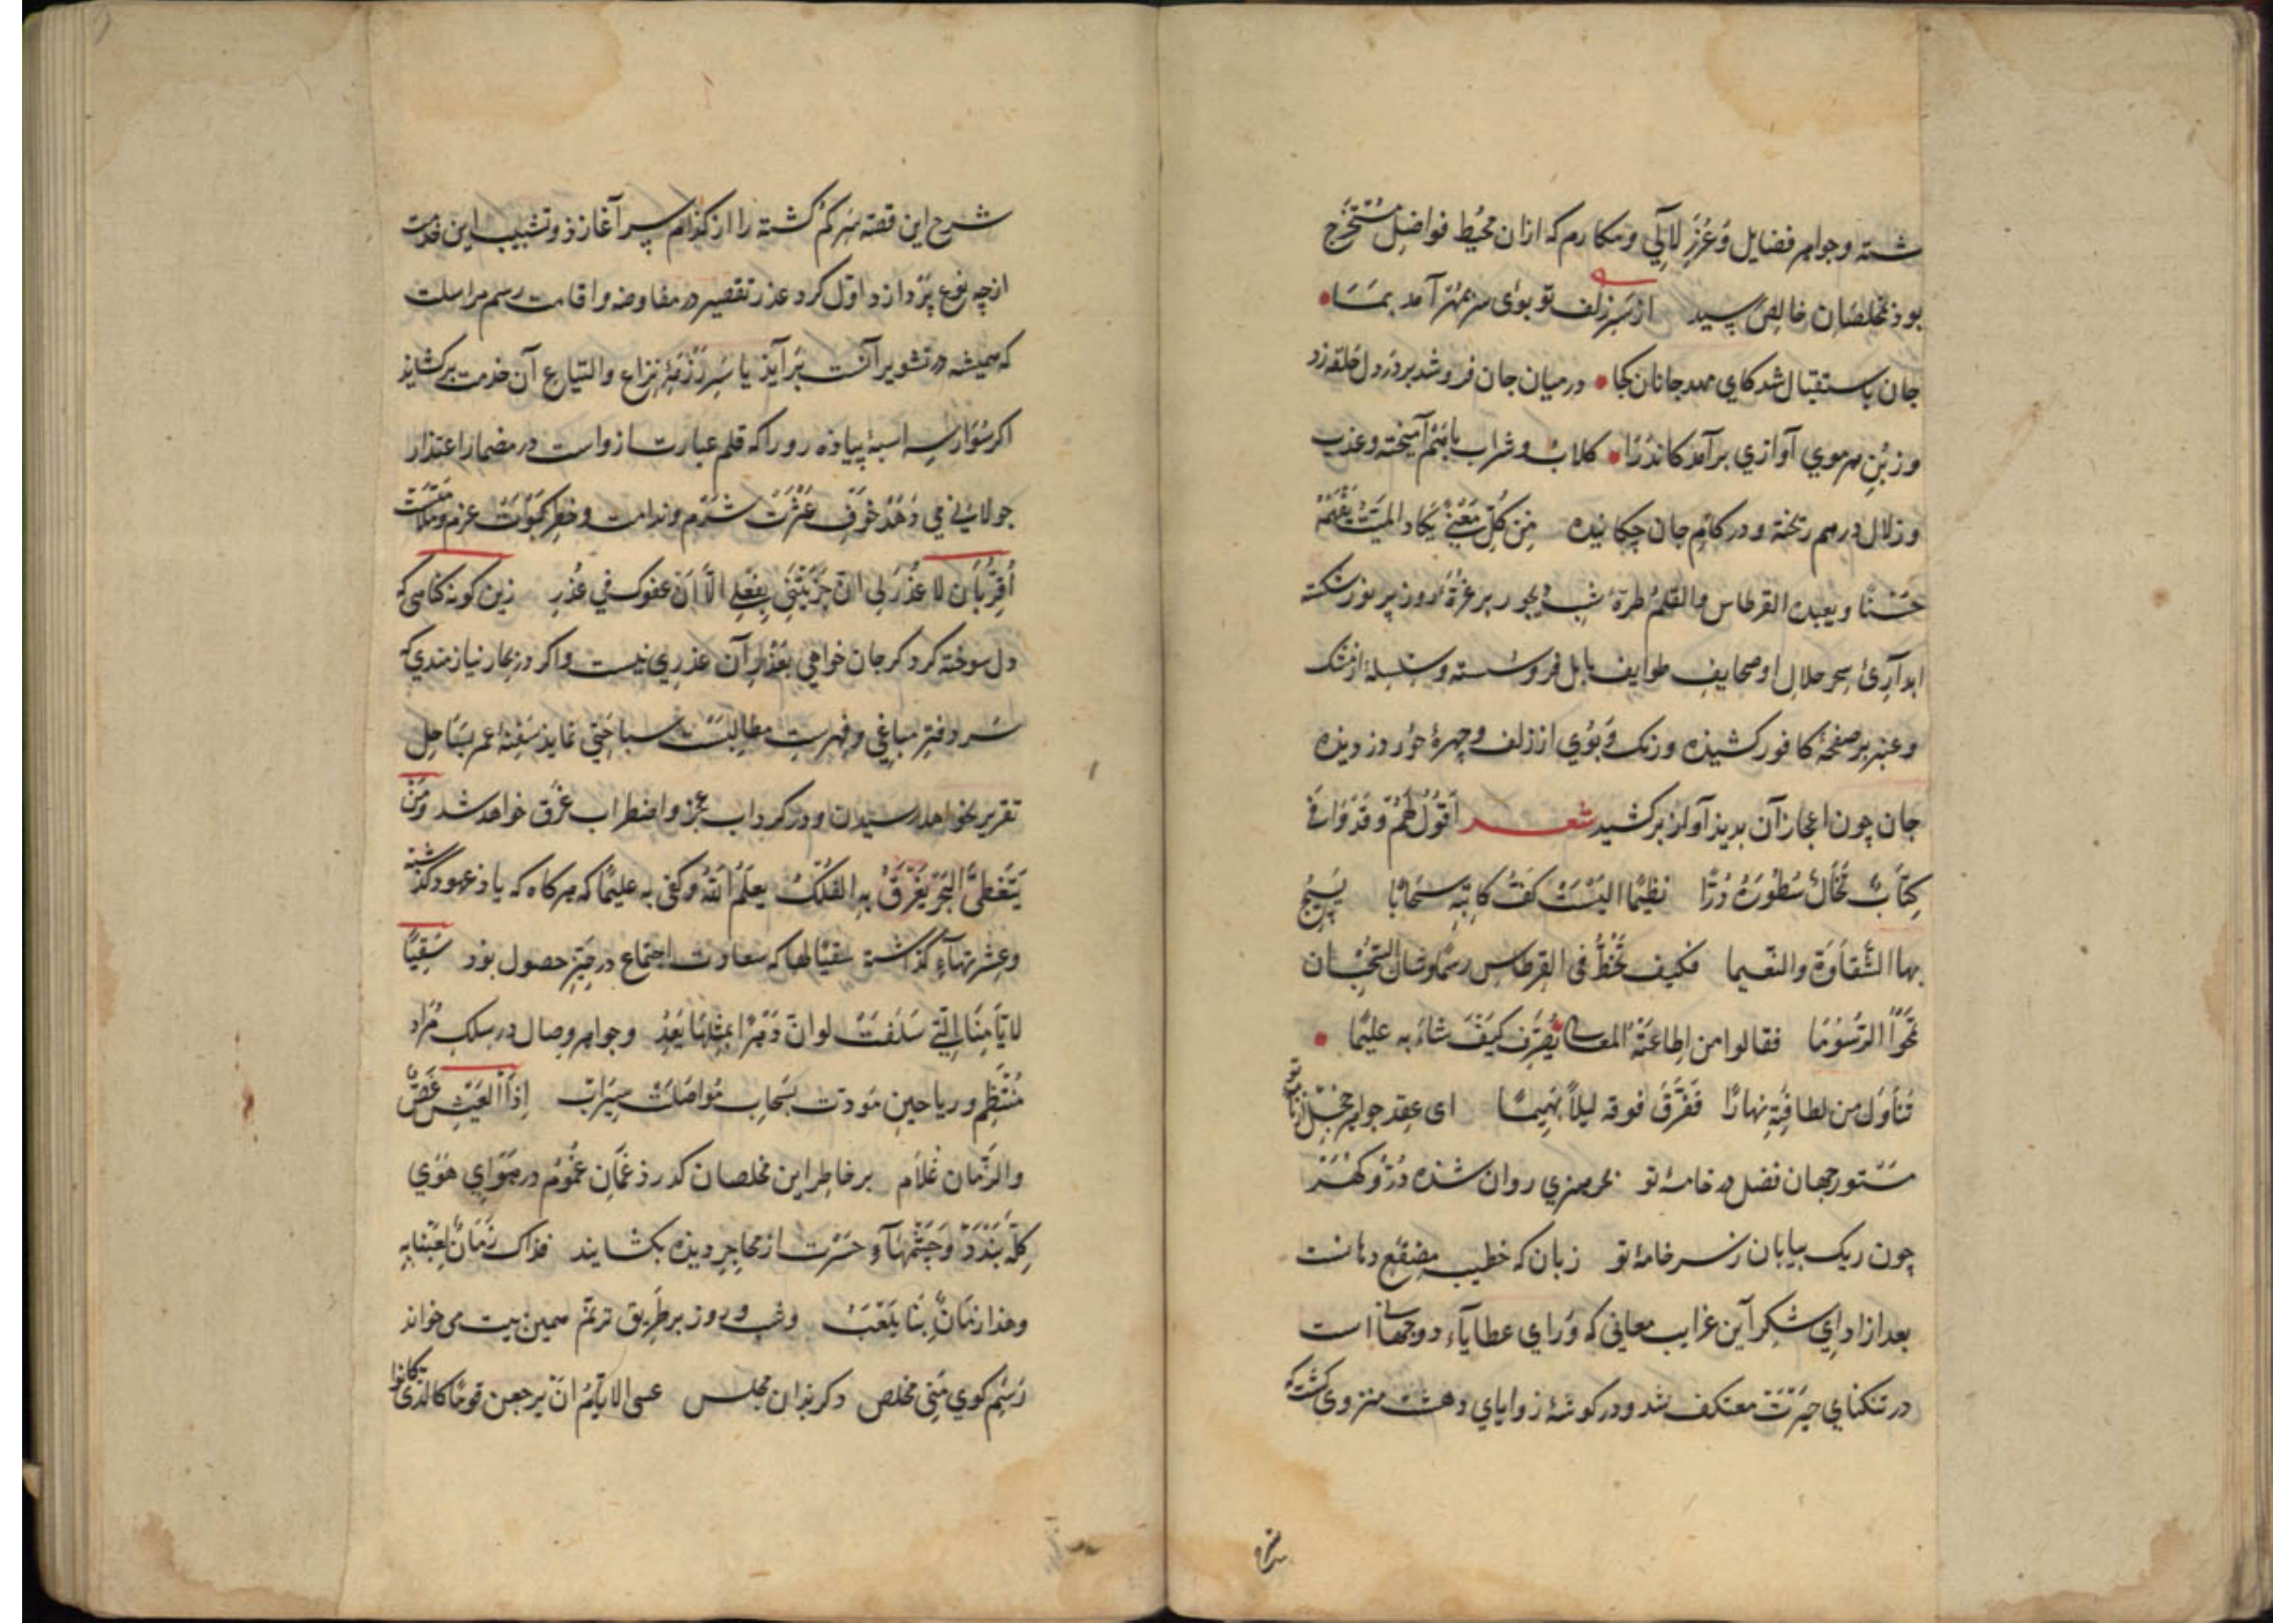 شسته وجواهر فضایل وغرر لآلي ومکارم که ازان محیط فواضل مستخرج
بوذ مخلصان خالص رسید از سر زلف تو بوی سر بمهر آمد بما
جان باستقبال شد کای مهد جانان کجا در میان جان فروشد بر در دل حلقه زد
وز بن هر موي آوازي برآمد کاندرآ کلاب وشراب باهم آمیخته وعذب
وزلال درهم ریخته ودر کام جان چکانیده من کل معنی یکاد المیت یفهمه
حسنا ویعبده القرطاس والقلم طرهٔ شب دیجور بر غرهٔ روز پر نور شکسته
ابدآرئ سحر حلال او صحایف طوایف بابل فروشسته وسلسلهٔ از مشک
وعنبر بر صفحهٔ کافور کشیذه ورنک وبوي از زلف وچهرهٔ حور دزدیذه
جان چون اعجاز آن بدیذ آواز برکشید شعر اقول لهم وقد وافی
کتاب تخال سطوره درا نظیما الیست کف کاتبه سحابا یسج
بها الشقاوة والنعیما فکیف تخط فی القرطاس رسما وشان السحب ان
تمحو الرسوما فقالوا من اطاعته المعانی یصرف کیف شاء به علیما
تناول من لطافته نهارا ففرق فوقه لیلا بهیما ای عقد جواهر خجل از نامهٔ تو
مستور جهان فضل در خامهٔ تو بحر هنري روان شذه در وکهر
چون ریک بیابان ز سر خامهٔ تو زبان که خطیب مصقع دهانست
بعد از اداي شکر آین غرایب معانی که وراي عطایآء دو جهانی است
در تنکنای حیرت معتکف شد ودر کوشهٔ زوایاي دهشت منزوي کشت که
شرح این قصه سر کم کشته را از کذام سر آغازذ وتشبیب این خدمت
از چه نوع پردازد اول کرد عذر تقصیر در مفاوضه واقامت رسم مراسلت
که همیشه در تشویر آنست برآیذ یا سر رزمهٔ نزاع والتیاع آن خدمت برکشایذ
اکر سوار سه اسبهٔ پیاذه رو را که قلم عبارت ازواست در مضمار اعتذار
جولانی می دهذ خوف عثرت شرم وندامت وخطر کبوات عزم وملامت
أقر بأن لا عذر لی ان جزیتنی بفعلی الا أن عفوک في عذر زین کونه کناهی که
دل سوخته کرد کر جان خواهي بعذر آن عذري نیست واکر در بحار نیازمندي که
سر دفتر مباغي وفهرست مطالبست سباحتی نمایذ سفینهٔ عمر بساحل
تقریر نخواهد رسیدن ودر کرداب عجز واضطراب غرق خواهد شد ومن
یتغطی البحر یغرق به الفلک یعلم الله وکفی به علیما که هرکاه که یاذ عهود کذشته
وعشرتهاء کذاشته سقیا لها که سعادت اجتماع در حیز حصول بوذ سقیا
لایامنا التي سلفت لو ان دهرا بمثلها یعد وجواهر وصال در سلک مراد
منتظم وریاحین مودت بسحاب مواصلت سیراب إذ العیش غض
والزمان غلام بر خاطر این مخلصان کذرذ غمان غموم در هواي هوي
کله بندد وچشمهآء حسرت از محاجر دیذه بکشایند فذاک زمان لعبنا به
وهذا زمان بنا یلعب وشب وروز بر طریق ترنم همین بیت می خواند
رسم کوي منی مخلص دکر بذان مجلس عسی الایام ان یرجعن قوما کالذی کانوا